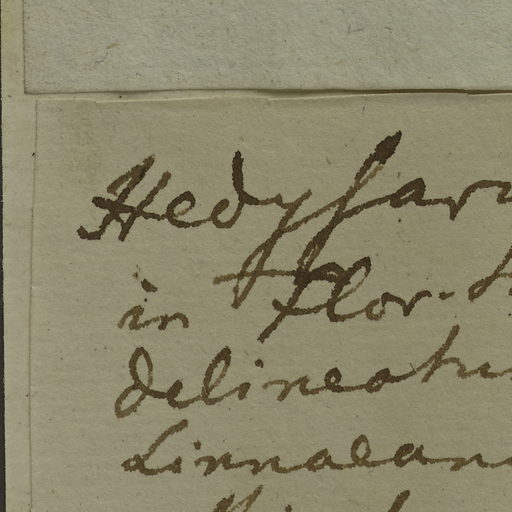 Hedysaru
in Flor.
delineatu
Linnaean